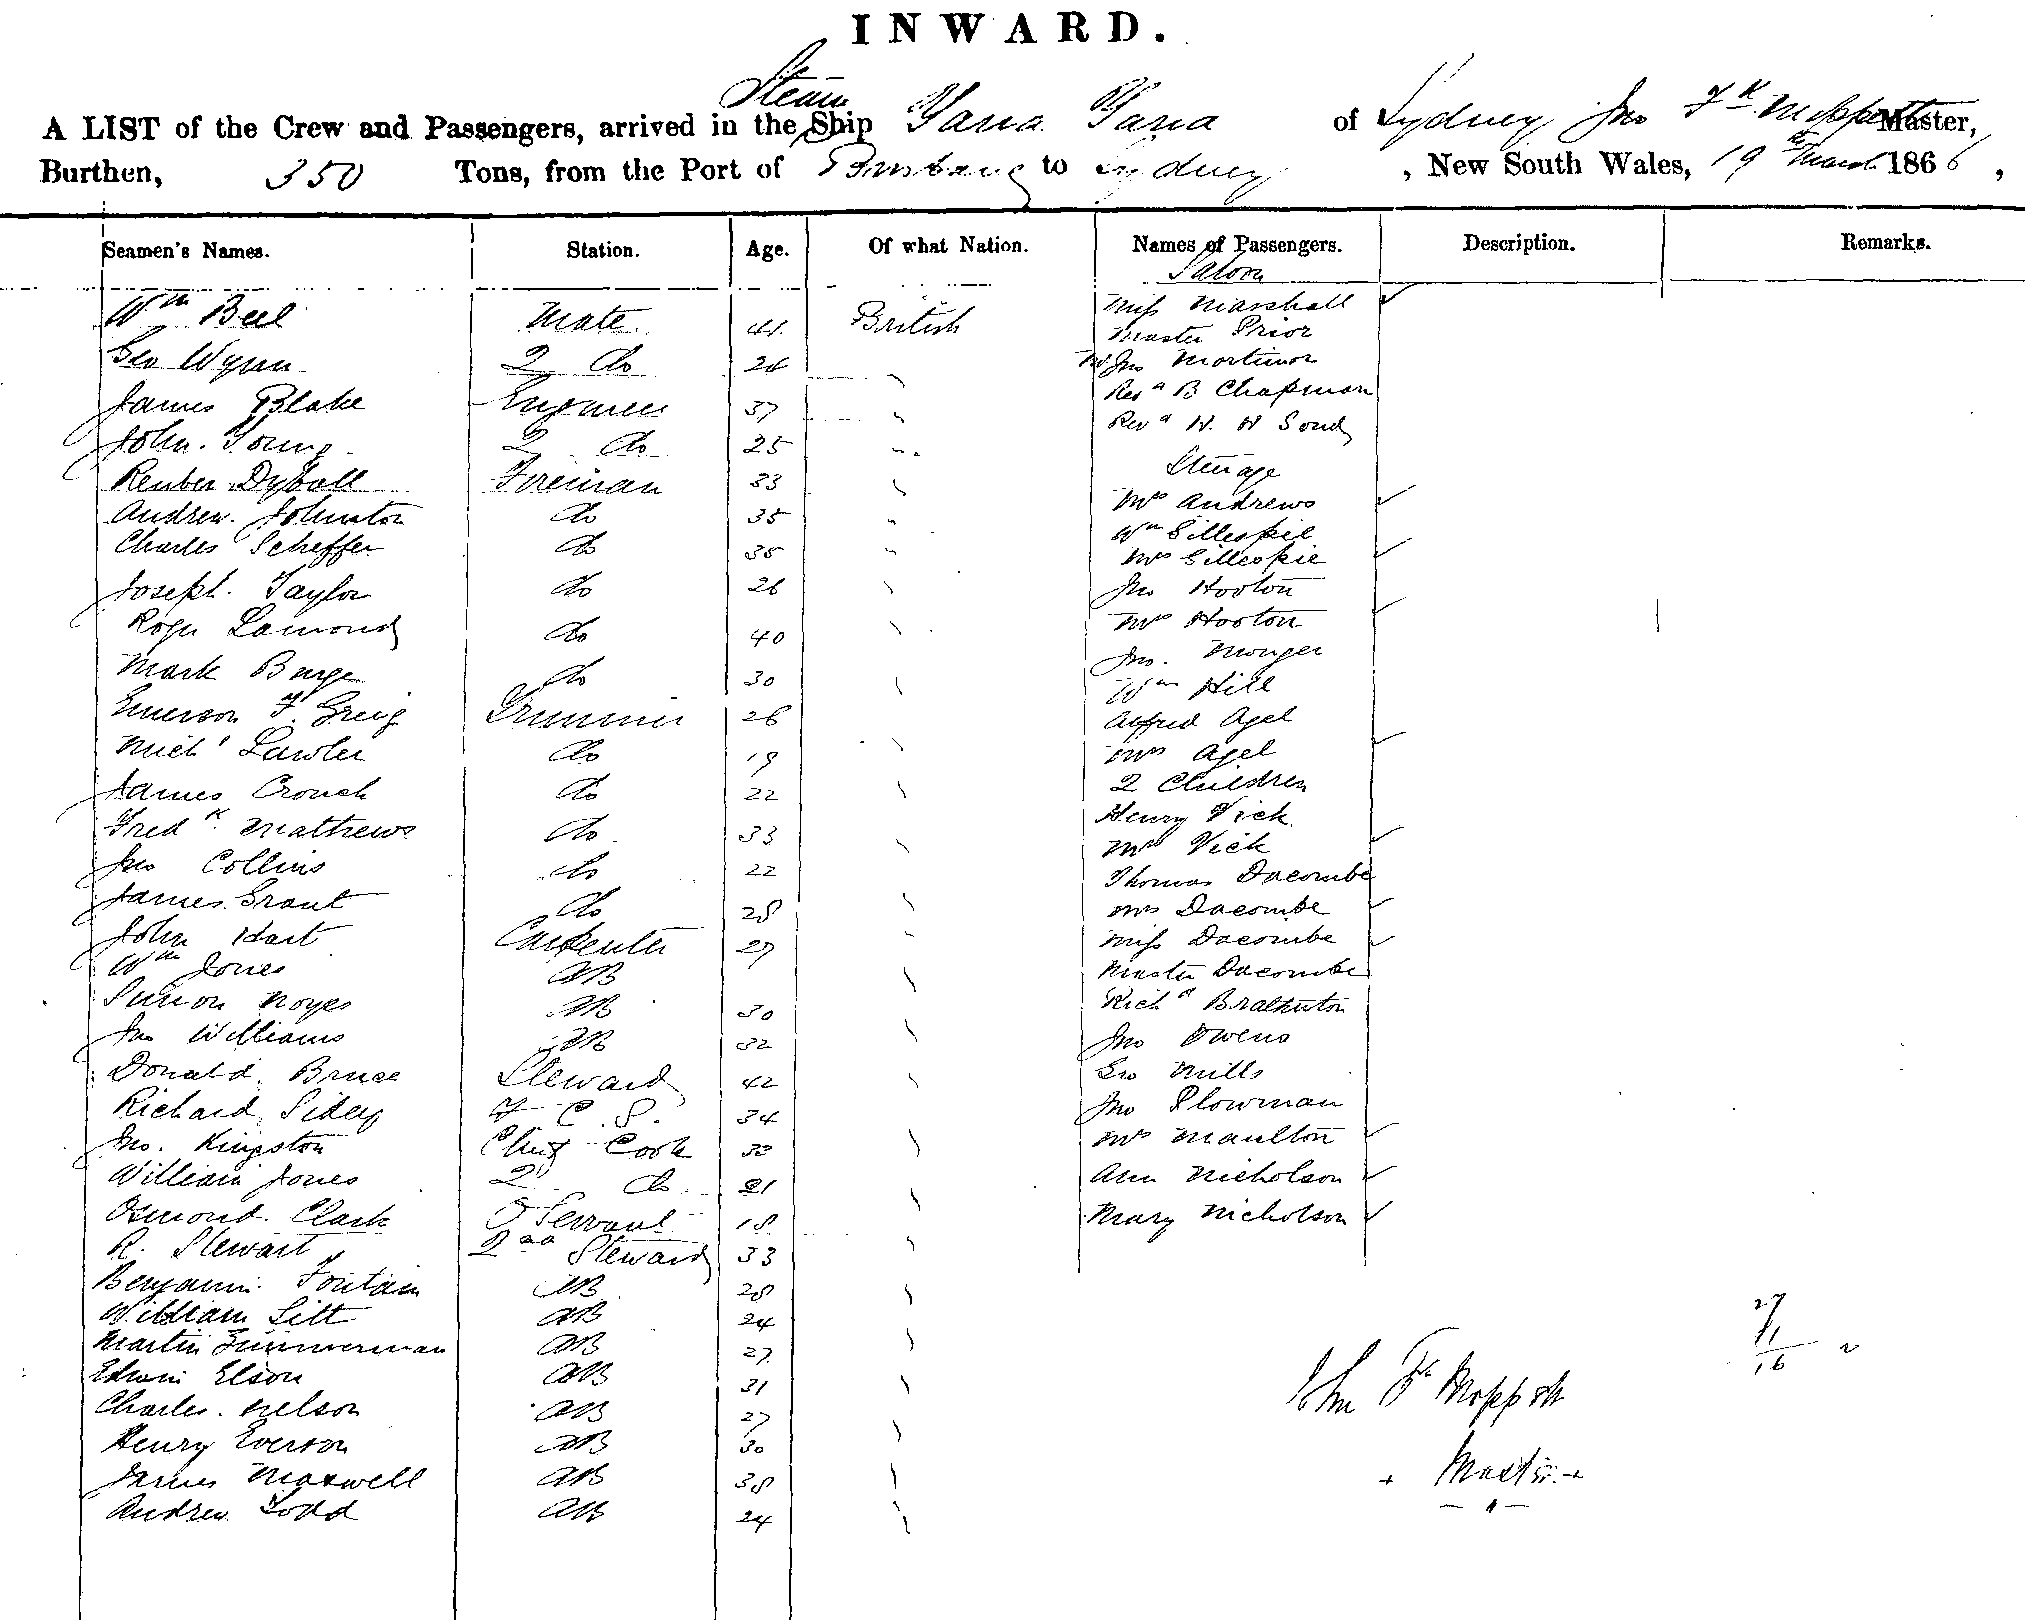 INWARD.
Steam
A LIST of the Crew and Passengers, arrived in the Ship Yarra Yarra of Sydney Jno Fk Moppett Master,
Burthen, 350 Tons, from the Port of Brisbane to Sydney, New South Wales, 19th March 1866,
Seamen's Names. Station. Age. Of what Nation. Names of Passengers. Description. Remarks.
Wm Bell Mate 44 British
Geo Wynn 2 do 24 "
James Blake 37 "
John Young 2 do 25 "
Reuben Dyball Fireman 33 "
Andrew Johnston do 35 "
Charles Scheffer do 35 "
Joseph Taylor do 26 "
Roger Lamond do 40 "
Mark Burge do 30 "
Emerson F. Greig Trimmer 26 "
Michl Lawler do 19 "
James Crouch do 22 "
Fredk Mathews do 33 "
Jno Collins do 22 "
James Grant do 28 "
John Hart Carpenter 27 "
Wm Jones AB "
Simon Noyes AB 30 "
Jno Williams AB 32 "
Donald Bruce Steward 42 "
Richard F. C. S. 34
Jno. Kingston Chief Cook 30 "
William Jones 2 do 21 "
Osmond Clark Servant 18 "
R. Stewart Steward 33 "
Benjamin Fontain AB 28 "
William AB 24 "
Martin Zimmerman AB 27 "
Edwin Elson AB 31 "
Charles Nelson AB 27 "
Henry Everson AB 30 "
James Maxwell AB 38 "
Andrew Todd AB 24 "
Saloon
Miss Marshall
Master Prior
Jno Mortimer
Revd B Chapman
Revd
Steerage
Mrs Andrews
Wm Gillespie
Mrs Gillespie
Jno Hooton
Mrs Hooton
Jno. Monger
Wm Hill
Alfred Agel
Mrs Agel
2 Children
Henry Vick
Mrs Vick
Thomas Dacombe
Mrs Dacombe
Miss Dacombe
Master Dacombe
Richd
Jno Owens
Geo Mills
Jno Plowman
Mrs Maulton
Ann Nicholson
Mary Nicholson
27
16
Jno Fk Moppett
Master